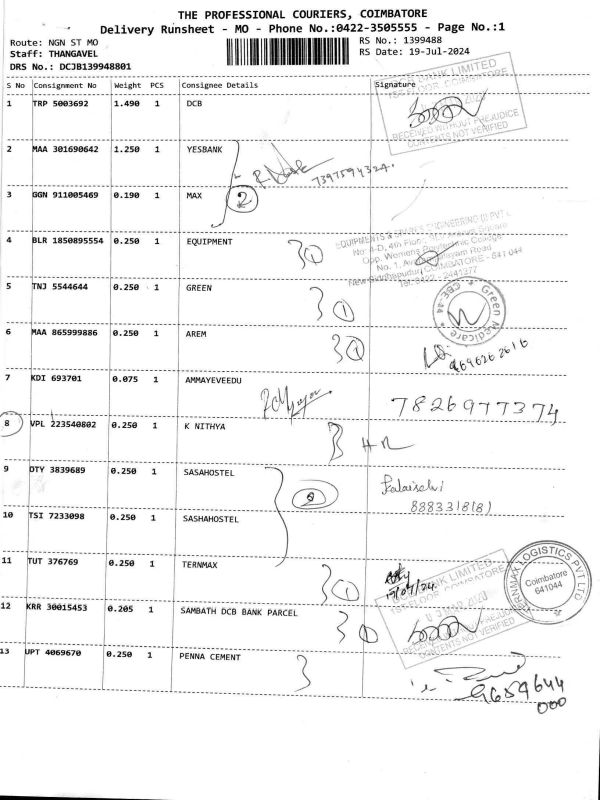 THE PROFESSIONAL COURIERS, COIMBATORE
Delivery Runsheet - MO - Phone No.:0422-3505555 - Page No.:1
Route: NGN ST MO
RS No.: 1399488
Staff: THANGAVEL
RS Date: 19-Jul-2024
DRS No.: DCJB139948801
S No Consignment No Weight PCS Consignee Details Signature
DCB BANK LIMITED
COIMBATORE
RECEIVED WITHOUT PREJUDICE
CONTENTS NOT VERIFIED
1 TRP 5003692 1.490 1 DCB
2 MAA 301690642 1.250 1 YESBANK
7397594324.
3 GGN 911005469 0.190 1 MAX 2
4 BLR 1850895554 0.250 1 EQUIPMENT
Opp. Womens Polytechnic College
COIMBATORE - 641 044
5 TNJ 5544644 0.250 1 GREEN 1
Green Medicare CBE-44
6 MAA 865999886 0.250 1 AREM 1
9696262616
7 KDI 693701 0.075 1 AMMAYEVEEDU
7826977374
8 VPL 223540802 0.250 1 K NITHYA
9 OTY 3839689 0.250 1 SASAHOSTEL
Kalaiselvi
8883318181
10 TSI 7233098 0.250 1 SASHAHOSTEL
11 TUT 376769 0.250 1 TERNMAX 1
19/07/24
TERNMAX LOGISTICS PVT LTD
Coimbatore
641044
12 KRR 30015453 0.205 1 SAMBATH DCB BANK PARCEL 1
BANK LIMITED
COIMBATORE
RECEIVED WITHOUT PREJUDICE
CONTENTS NOT VERIFIED
13 UPT 4069670 0.250 1 PENNA CEMENT
9659644
000